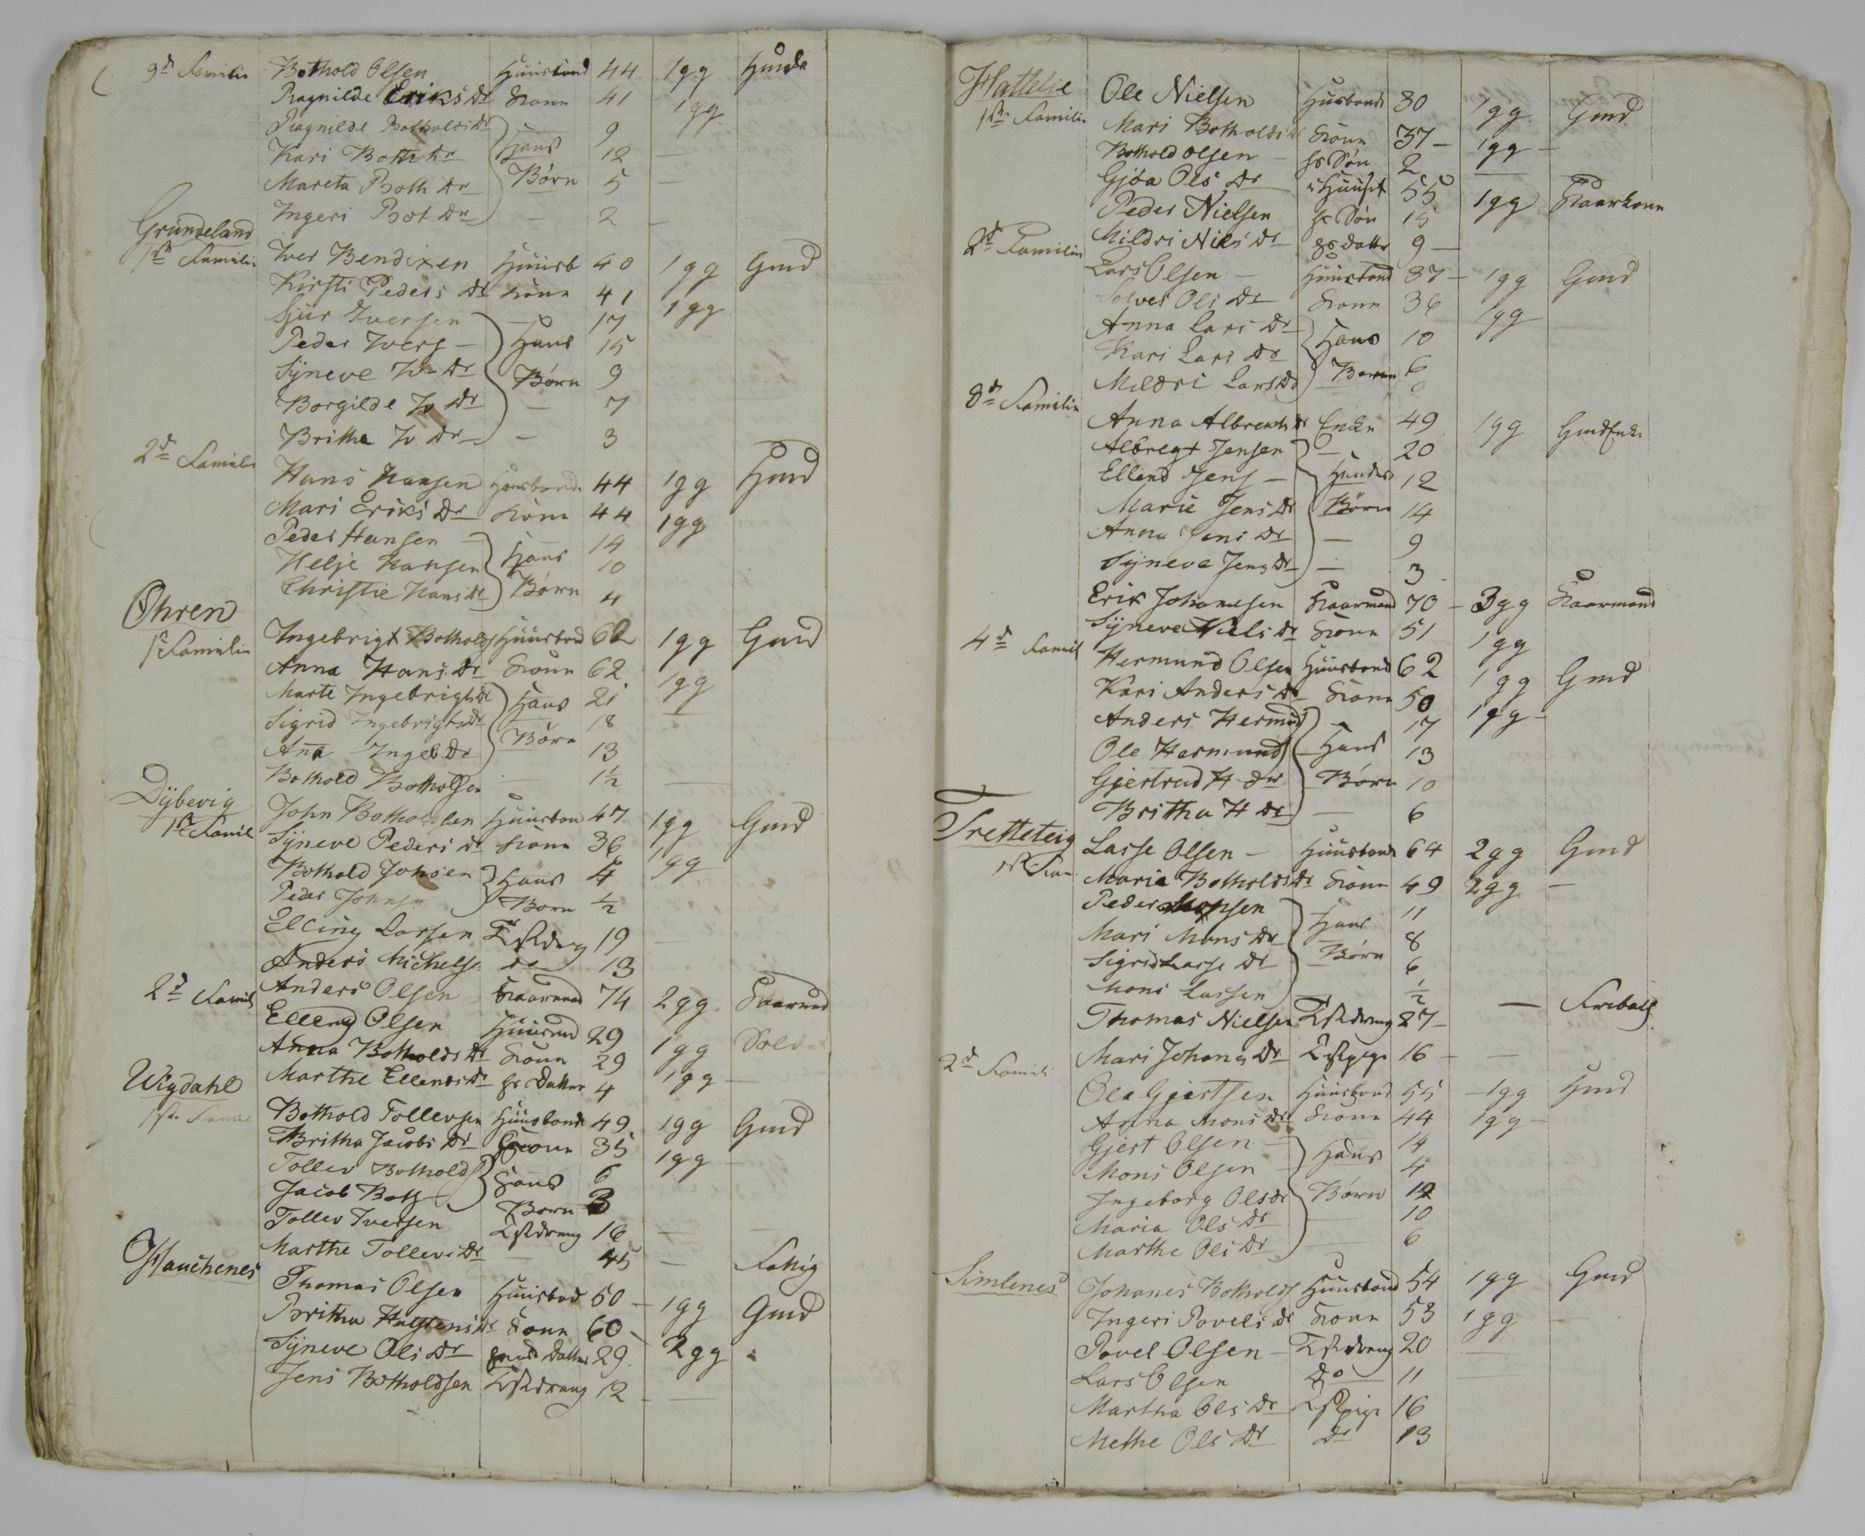 3d Familie Bothold Olsen Huusbond 44 1 gg Huusm
Ragnilde Eriks Dr Kone 41 1 gg
Ragnilde Botholds Dr Hans 9
Kari Both Dr 12 —
Mareta Both Dr Børn 5 —
Ingeri Bot Dr — 2 —
Grundeland
1ste Familie Iver Bendixen Huusb 40 1 gg Gmd
Kirsti Peders Dr Kone 41 1 gg
Sjur Iversen — 17
Peder Ivers — Hans 15
Syneve Iv Dr Børn 9
Borgilde Iv Dr — 7
Britha Iv Dr — 3
2d Familie Hans Hansen Huusbonde 44 1 gg Gmd
Mari Eriks Dr Kone 44 1 gg
Peder Hansen — 14
Helje Hansen Hans 10
Christie Hans Dr Børn 4
Øhren
1ste Familie Ingebrigt Botholds Huusbond 62 1 gg Gmd
Anna Hans Dr Kone 62 1 gg
Marte Ingebrigts Dr Hans 21 —
Sigrid Ingebrigts Dr 18
Ana Ingeb Dr Børn 13
Bothold Botholsen — 1½ —
Dybevig
1ste Famil John Botholdsen Huusbon 47 1 gg Gmd
Syneve Peders Dr Kone 36 1 gg
Bothold Johnsen Hans 4
Peder Johns Born ½
Elling Larsen Tstdreng 19 —
Anders Michels do 13
2d Famil Anders Olsen Kaarmand 74 2 gg Kaarmd
Elleng Olsen Huusmd 29 1 gg Soldat
Anna Botholds Dr Kone 29 1 gg —
Marthe Ellends Dr hs Datter 4
Wigdahl
1ste Famil Bothold Tollevsen Huusbond 49 1 gg Gmd
Britha Jacobs Dr Kone 35 1 gg —
Tollev Bothold Hans 6
Jacob Bots Born 3
Tollev Iversen Tstdreng 16 — —
Marthe Tollevs Dr — 45 — Fattig
Hauchenes Thomas Olsen Huusbod 50 — 1 gg Gmd
Britha Halstens Dr Kone 60 —
Syneve Ols Dr Datter 29 2 gg
Jens Botholdsen Tstdreng 12 —
Hattelie Ole Nielsen Husbond 30 1 gg Gmd
1ste Familie Mari Botholds Dr Kone 37 — 1 gg —
Bothold Olsen — hs Søn 2 —
Gjøa Ols Dr i Huuset 55 1 gg Kaarkone
Peder Nielsen hs Søn 15
Mildri Niels Dr hs datter 9 —
2d Familie Lars Olsen — Huusbond 37 — 1 gg Gmd
Solvei Ols Dr Kone 36 1 gg
Anna Lars Dr Hans 10
Kari Lars Dr 6
Mildri Lars Dr Børn
3d Familie Anna Albrechts Dr Enke 49 1 gg GmdEnke
Albregt Jensen — 20
Ellend Jens — Hendes 12
Marie Jens Dr Børn 14
Anna Jens Dr — 9
Syneve Jens Dr — 3
Erik Johannesen Kaarmand 70 — 3 gg Kaarmand
Syneve Niels Dr Kone 51 1 gg
4d Famil Hermund Olsen Huusbond 62 1 gg Gmd
Kari Anders Dr Kone 50 1 gg —
Anders Hermund — 17
Ole Hermund Hans 13
Gjertrud H Dr Børn 10
Britha H Dr — 6
Tretteteig
1ste Fam Lasse Olsen — Huusbond 64 2 gg Gmd
Maria Botholds Dr Kone 49 2 gg —
Peder Monsen 11
Mari Mons Dr Hans 8
Sigrid Lasse Dr Børn 6
Mons Lassen — ½
Thomas Nielsen Tstdreng 27 — —
Mari Johans Dr Tstpige 16 — —
2d Famili Ole Gjertsen Huusbond 55 — 1 gg Gmd
Anna Mons Dr Kone 44 1 gg —
Gjert Olsen — 14
Mons Olsen Hans 4
Ingeborg Ols Dr Børn 12
Maria Ols Dr — 10
Marthe Ols Dr — 6
Simlenes Johanes Botholds Huusbond 54 1 gg Gmd
Ingeri Povels Dr Kone 53 1 gg —
Povel Olsen — Tstdreng 20 —
Lars Olsen do 11 —
Martha Ols Dr Tstpige 16
Methe Ols Dr do 13